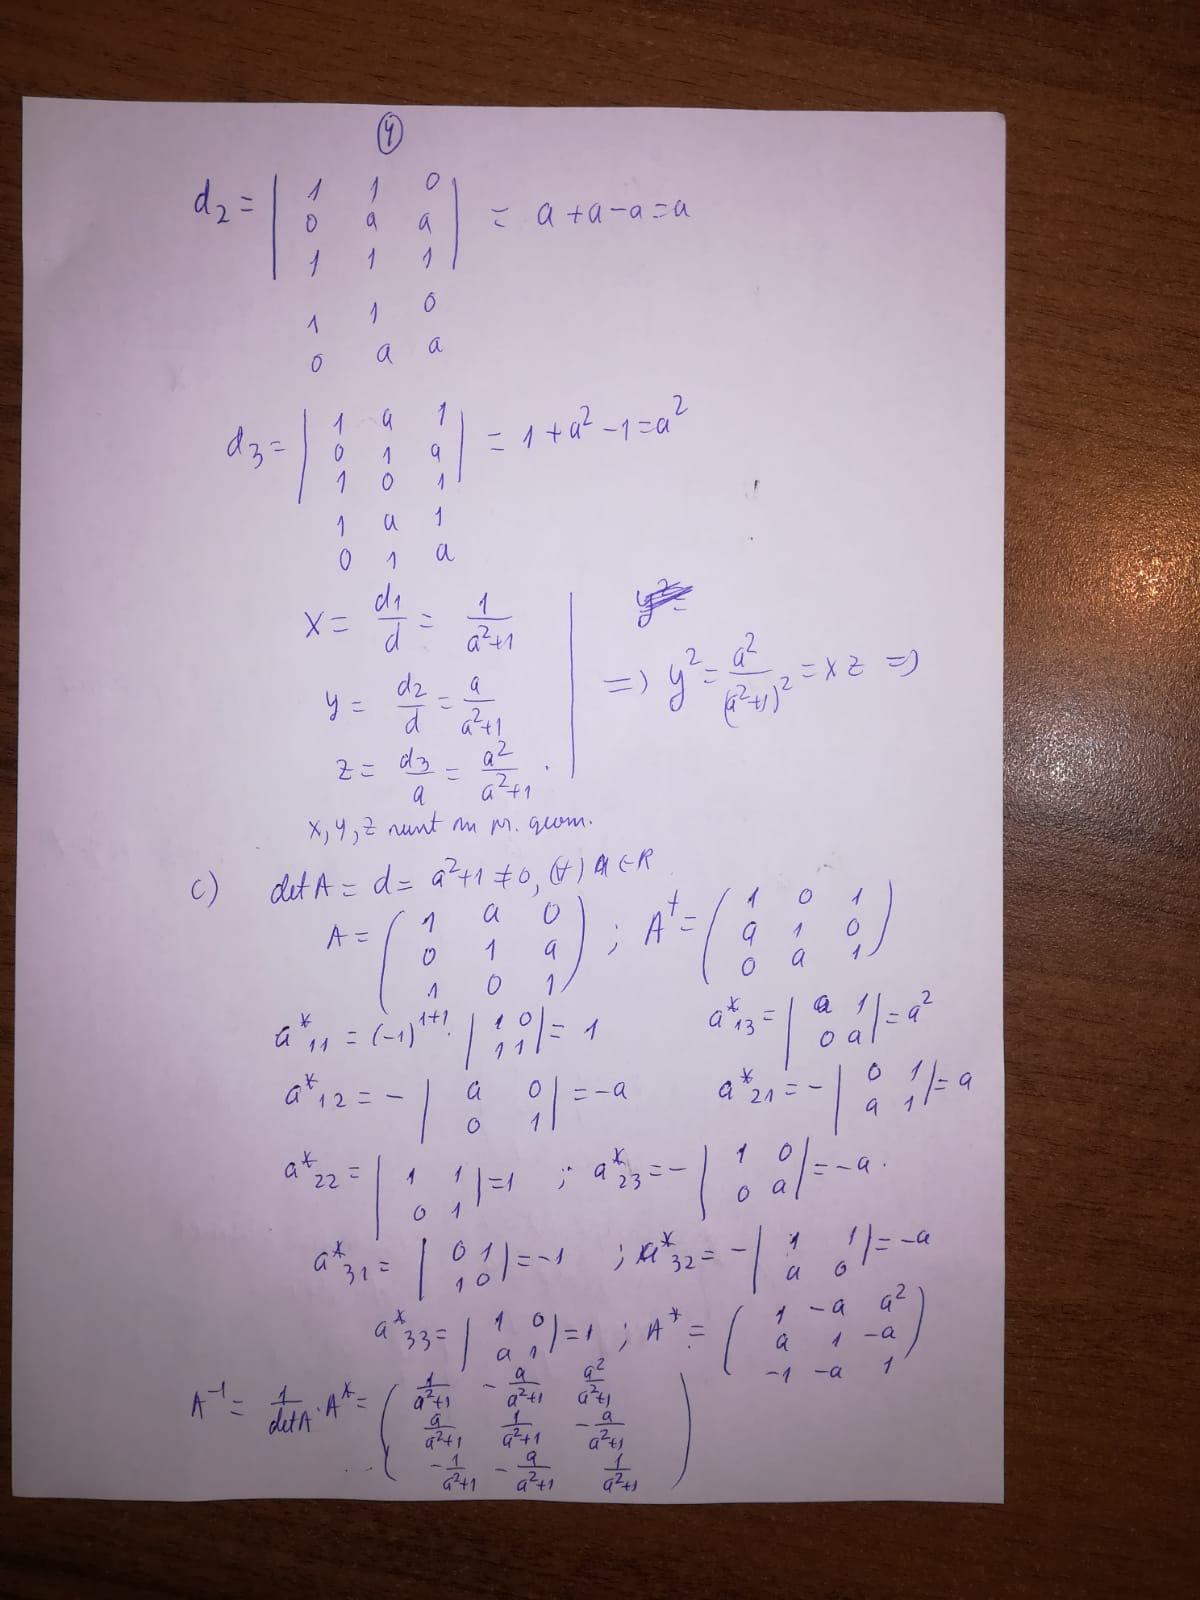 4
d2 = | 1 1 0 |
| 0 a a | = a + a - a = a
| 1 1 1 |
1 1 0
0 a a
d3 = | 1 a 1 |
| 0 1 a | = 1 + a² - 1 = a²
| 1 0 1 |
1 a 1
0 1 a
x = d1/d = 1/(a²+1)
y = d2/d = a/(a²+1) => y² = a²/(a²+1)² = x z =>
z = d3/a = a²/(a²+1).
x, y, z sunt în pr. geom.
c) det A = d = a²+1 ≠ 0, (∀) a ∈ R
A = ( 1 a 0 ) ; A^t = ( 1 0 1 )
( 0 1 a ) ( a 1 0 )
( 1 0 1 ) ( 0 a 1 )
a*11 = (-1)^(1+1) · | 1 0 ; 1 1 | = 1 a*13 = | a 1 ; 0 a | = a²
a*12 = - | a 0 ; 0 1 | = -a a*21 = - | 0 1 ; a 1 | = a
a*22 = | 1 1 ; 0 1 | = 1 ; a*23 = - | 1 0 ; 0 a | = -a.
a*31 = | 0 1 ; 1 0 | = -1 ; a*32 = - | 1 1 ; a 0 | = -a
a*33 = | 1 0 ; a 1 | = 1 ; A* = ( 1 -a a² )
( a 1 -a )
( -1 -a 1 )
A^-1 = 1/detA · A* = ( 1/(a²+1) -a/(a²+1) a²/(a²+1) )
( a/(a²+1) 1/(a²+1) -a/(a²+1) )
( -1/(a²+1) -a/(a²+1) 1/(a²+1) )